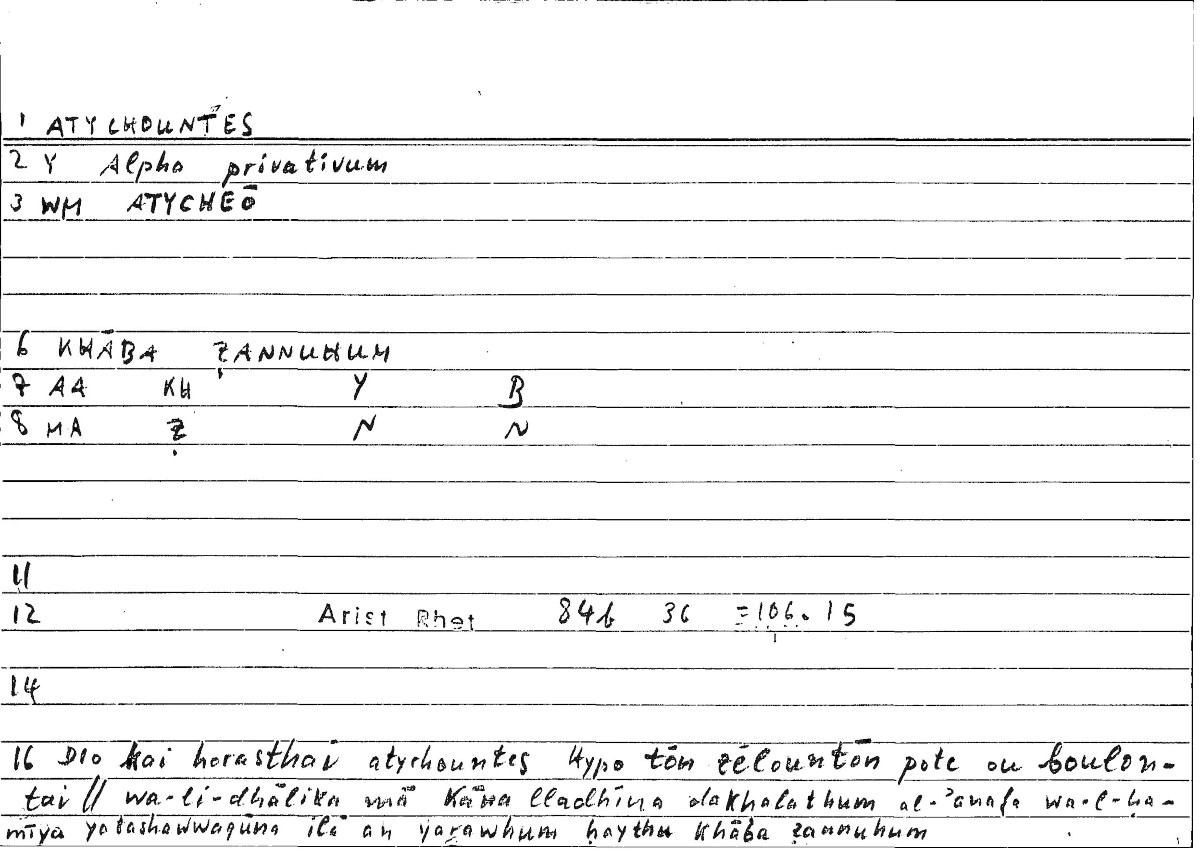 1 ATYCHOUNTES
2 Y Alpha privativum
3 WM ATYCHEŌ
6 KHĀBA ẒANNUHUM
7 AA KH Y B
8 MA Ẓ N N
11
12 Arist Rhet 84b 36 =106.15
14
16 Dio kai horasthai atychountes hypo tōn zēlountōn pote ou boulon-
tai // wa-li-dhālika mā kāna lladhīna dakhalathum al-ʾanafa wa-l-ḥa-
mīya yatashawwaqūna ilā an yarawhum ḥaythu khāba ẓannuhum